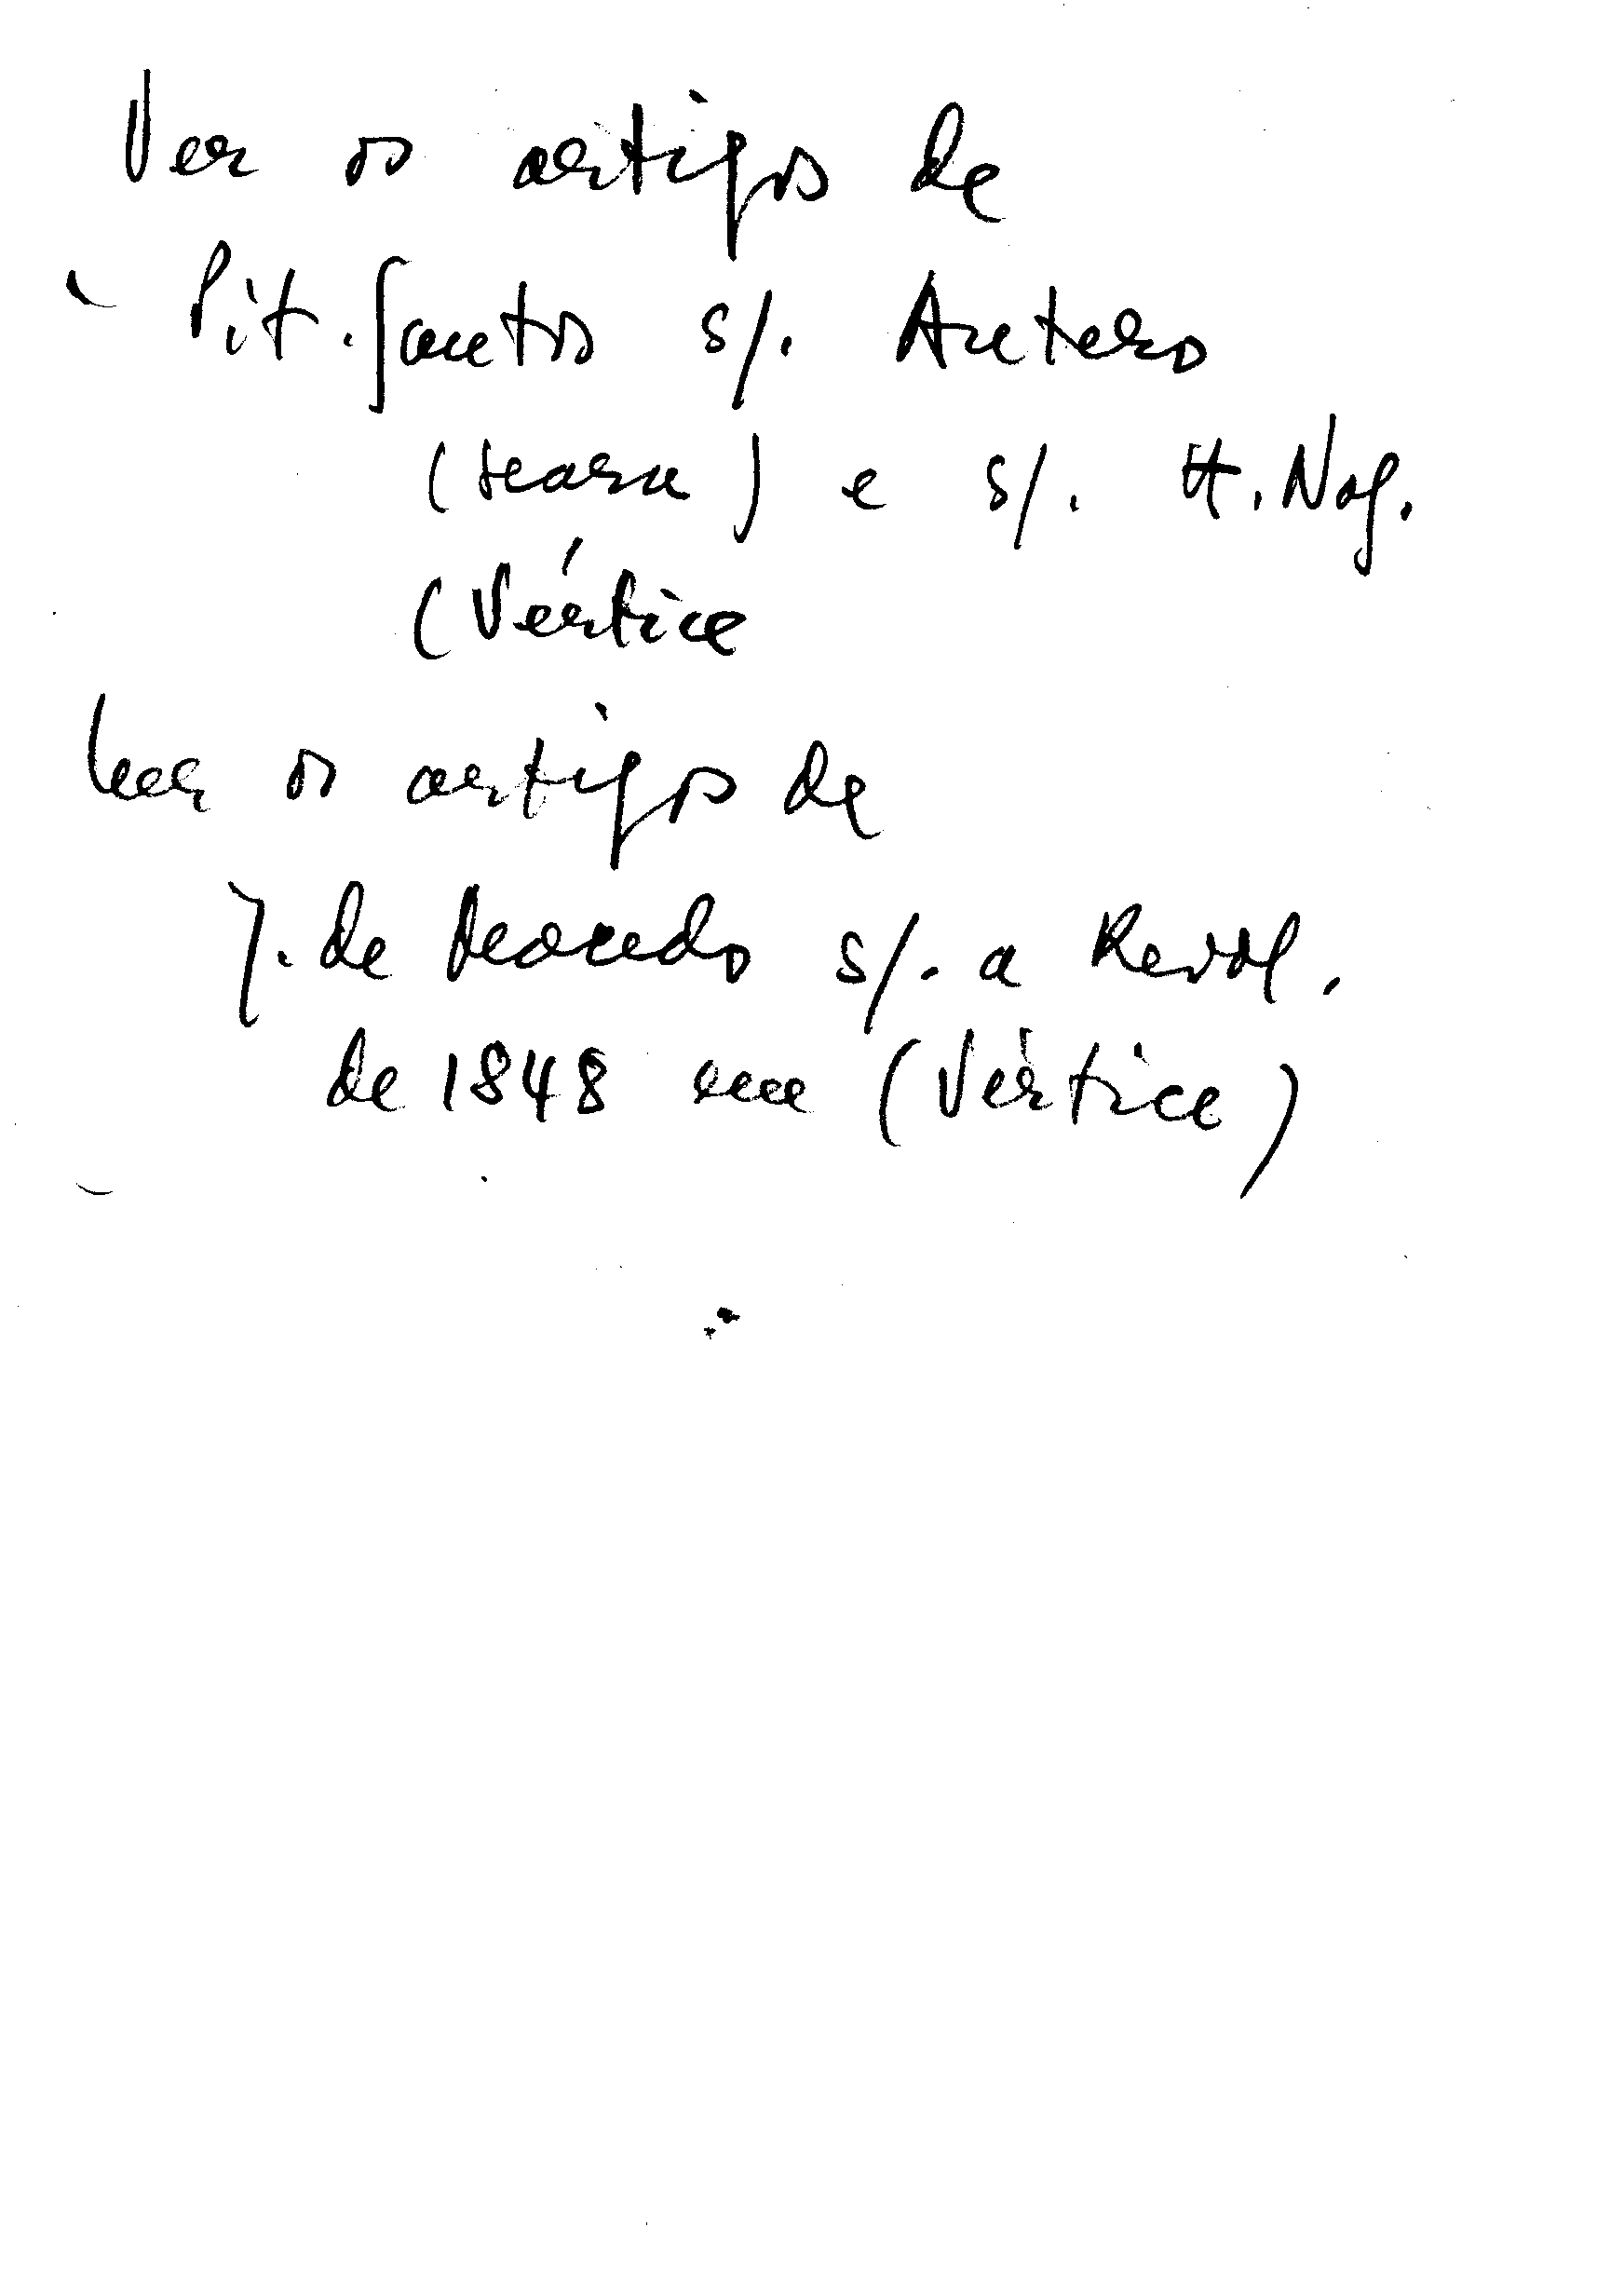 Ver os artigos de
Pit. Santos s/. Antero
(seara) e s/. H. Nog.
(Vértice
Ler os artigos de
J. de Macedo s/. a Revol.
de 1848 em (Vértice)